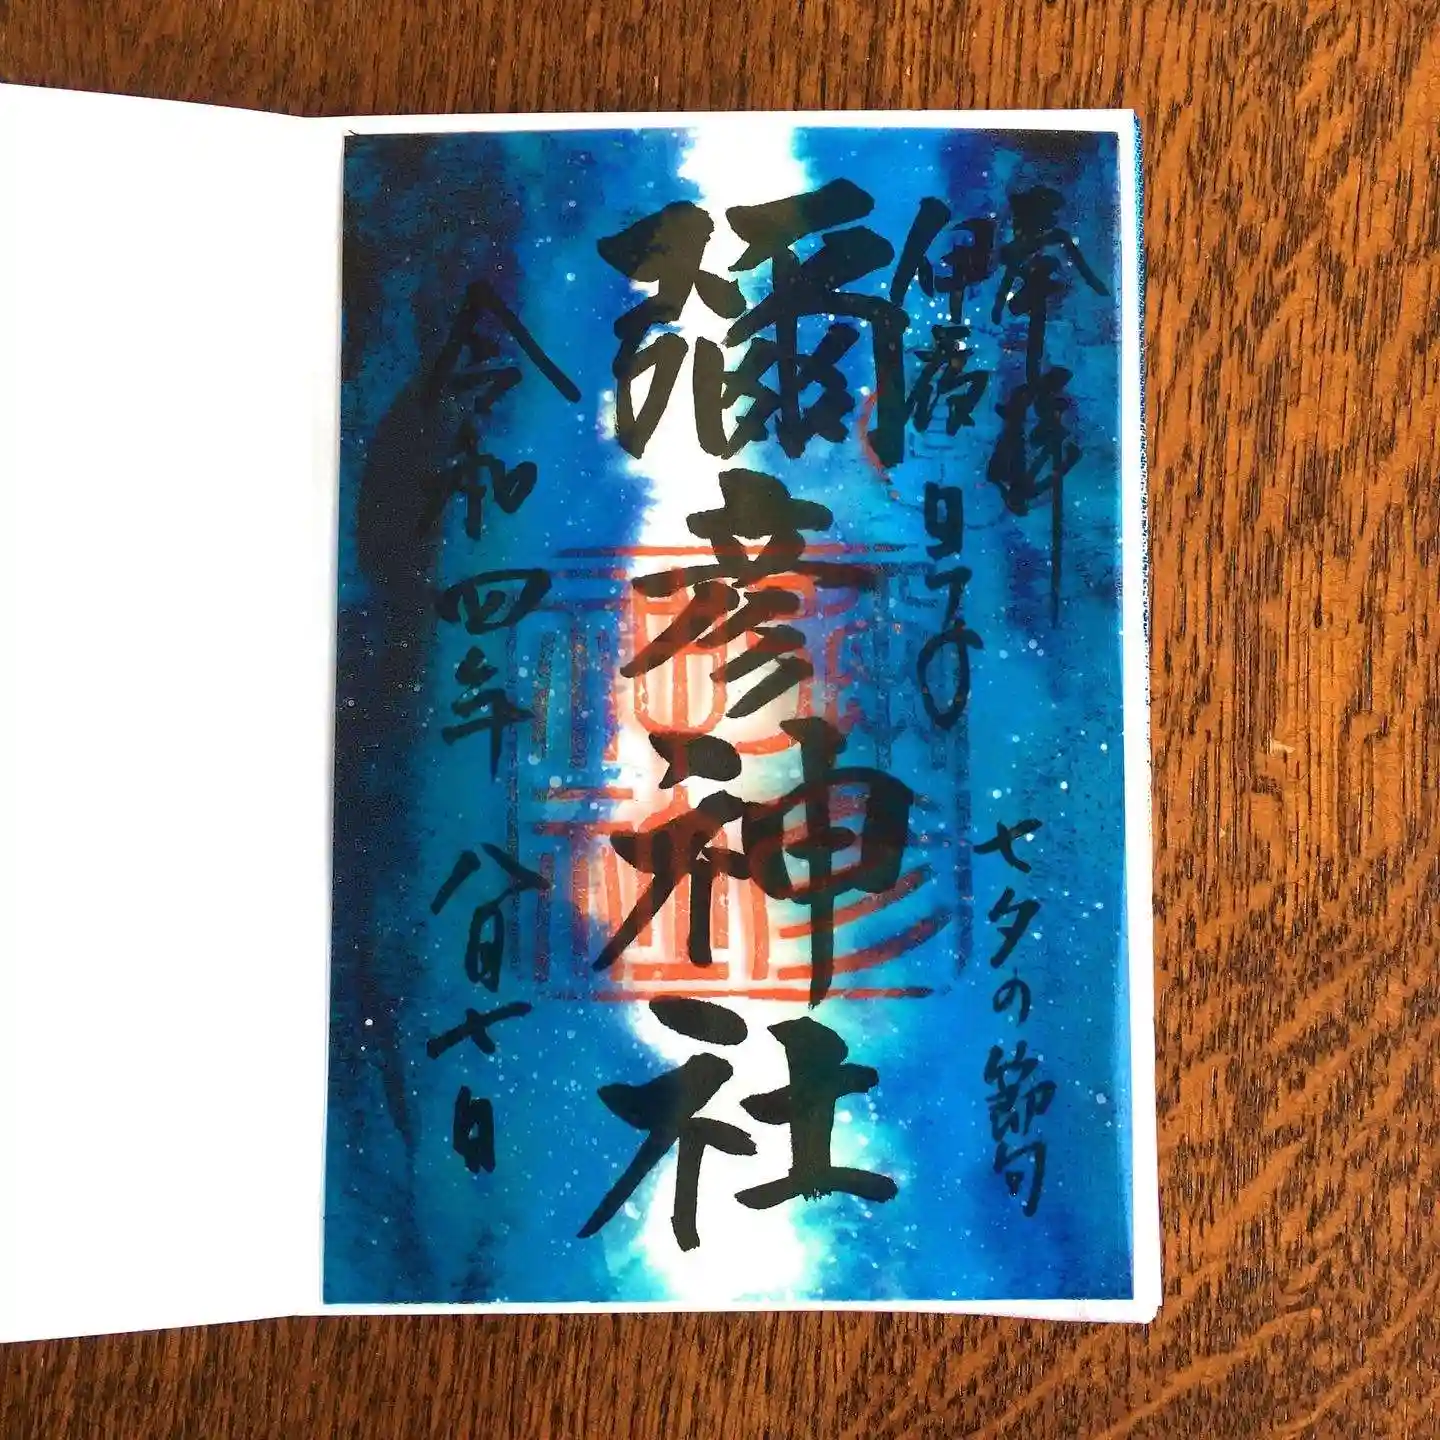 奉拝
七夕の節句
伊夜日子
彌彦神社
令和四年八月七日